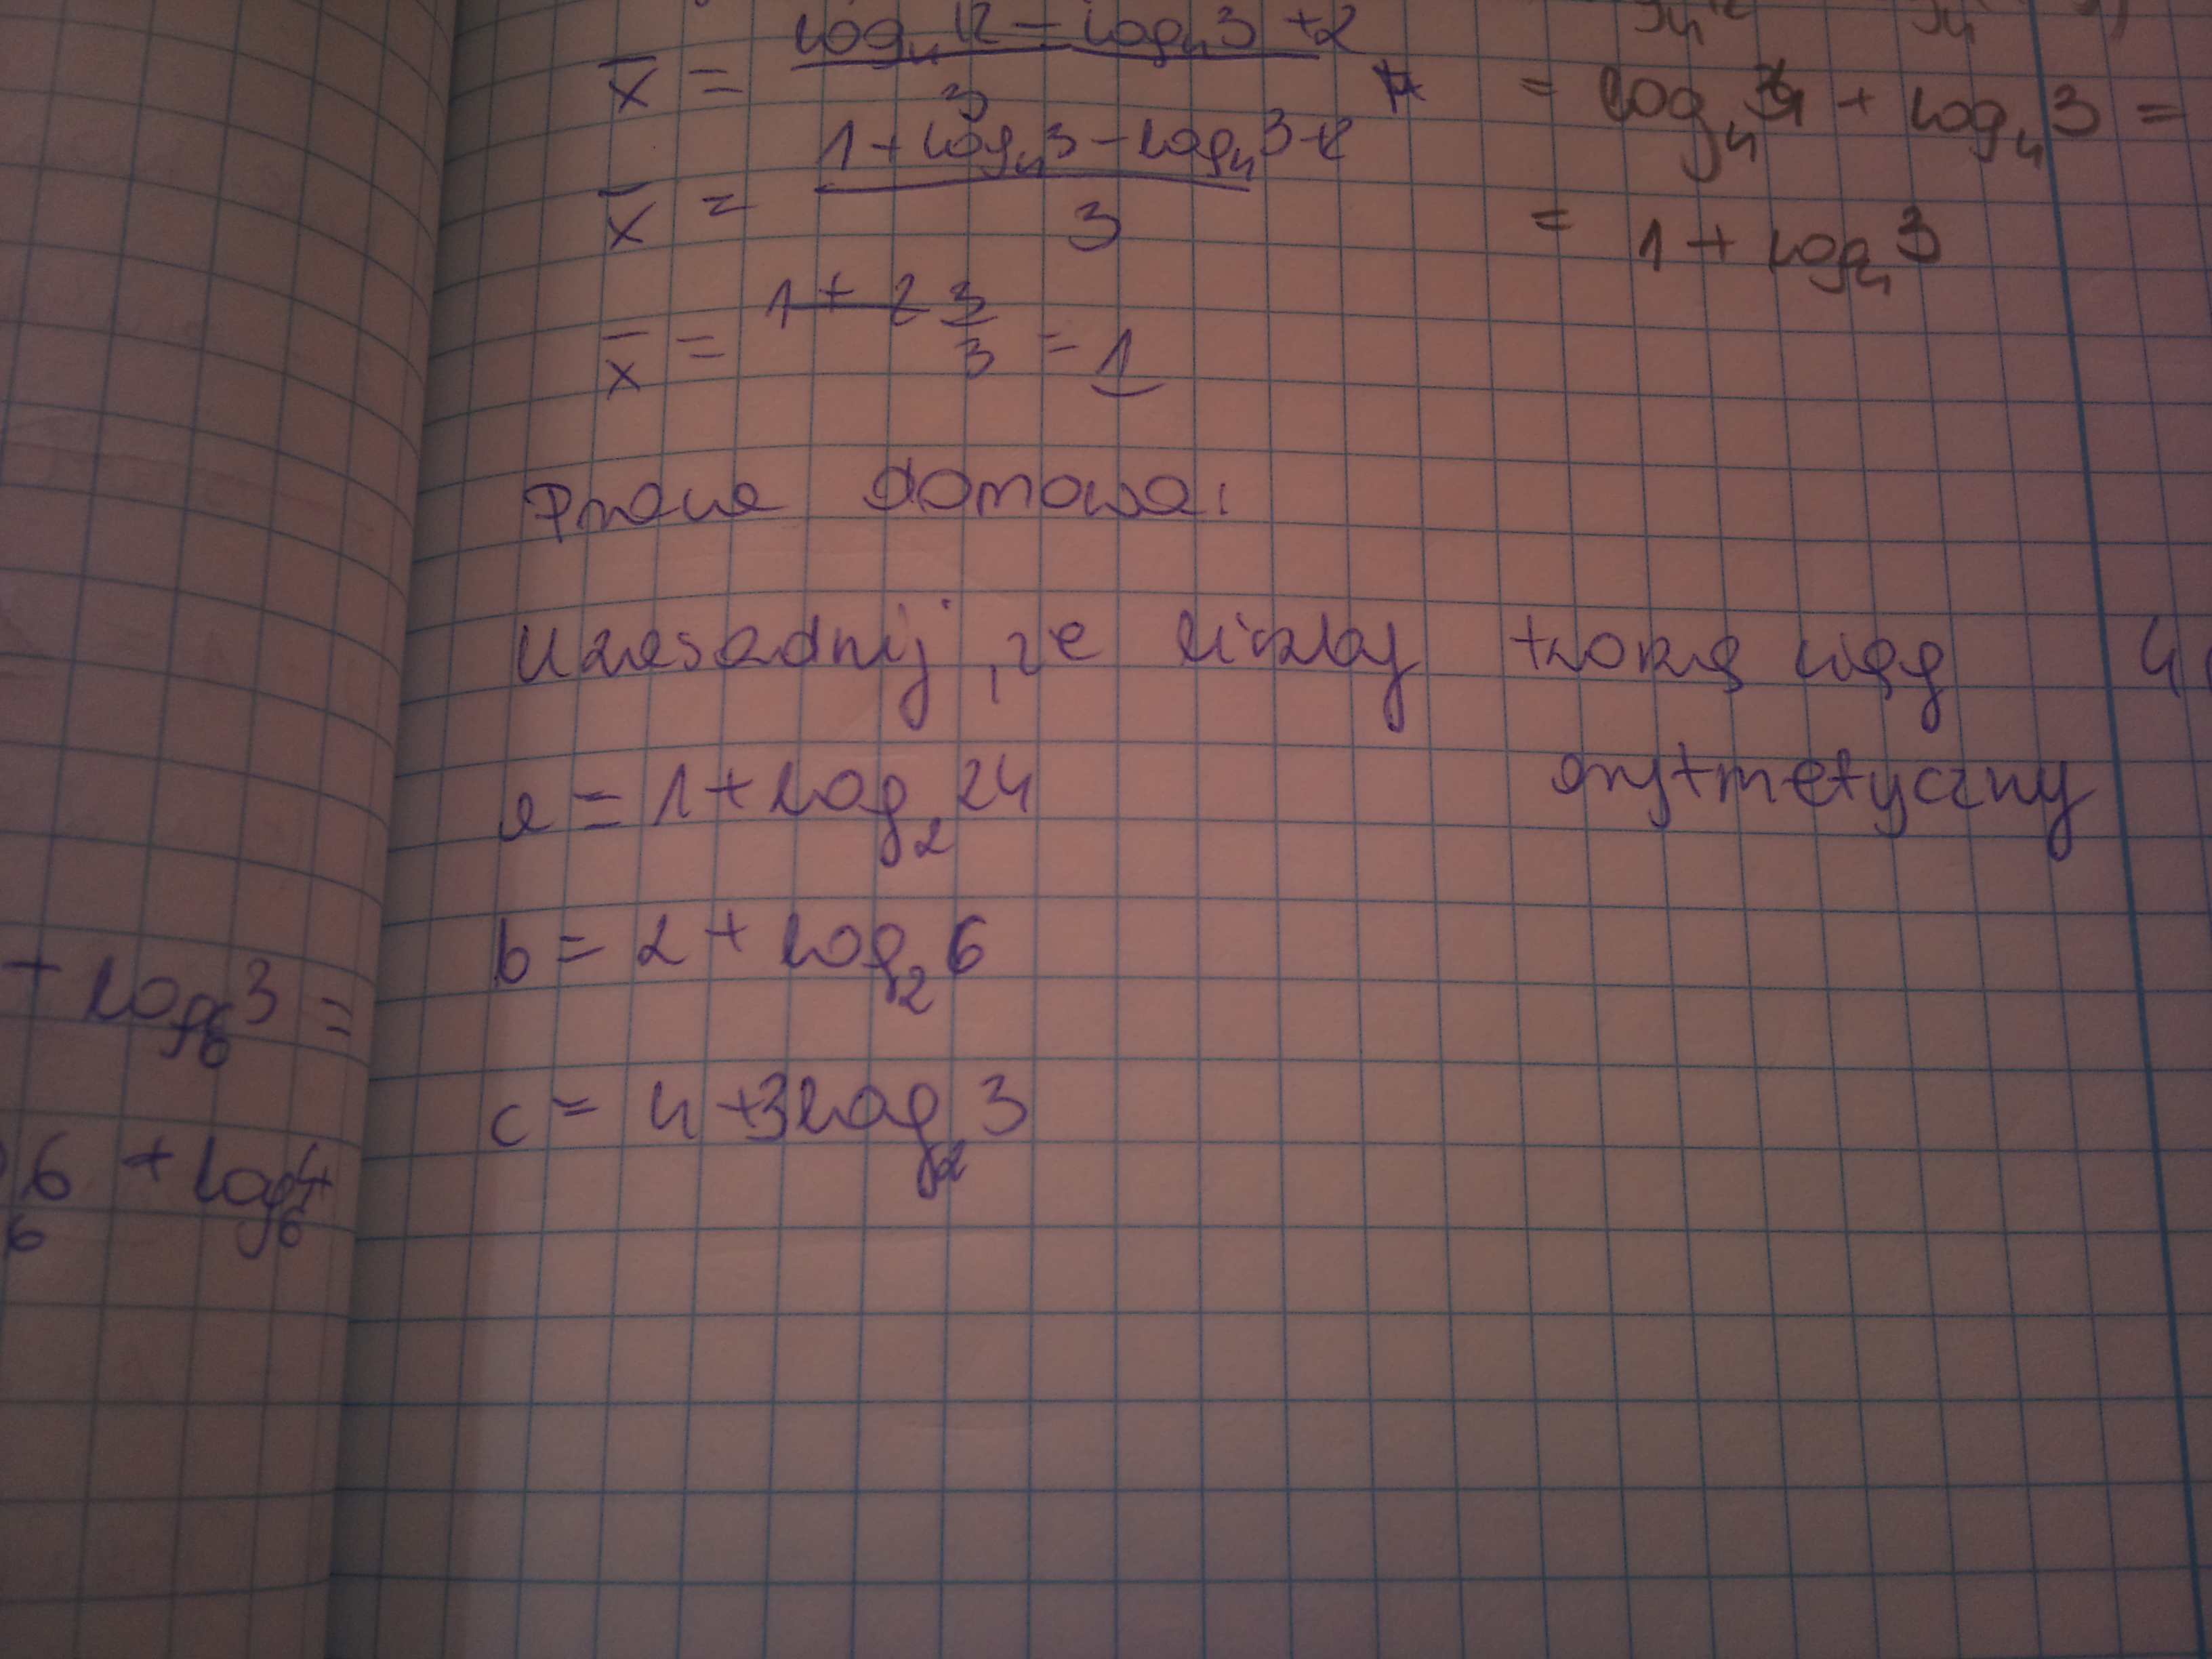 x̄ = (log₄12 − log₄3 + 2) / 3
= log₄4 + log₄3 =
x̄ = (1 + log₄3 − log₄3 + 2) / 3
= 1 + log₄3
x̄ = 3/3 = 1
Praca domowa:
Uzasadnij, że liczby tworzą ciąg
arytmetyczny
a = 1 + log₂24
b = 2 + log₂6
+ log₆3 =
c = 4 + 3log₂3
6 + log₆4